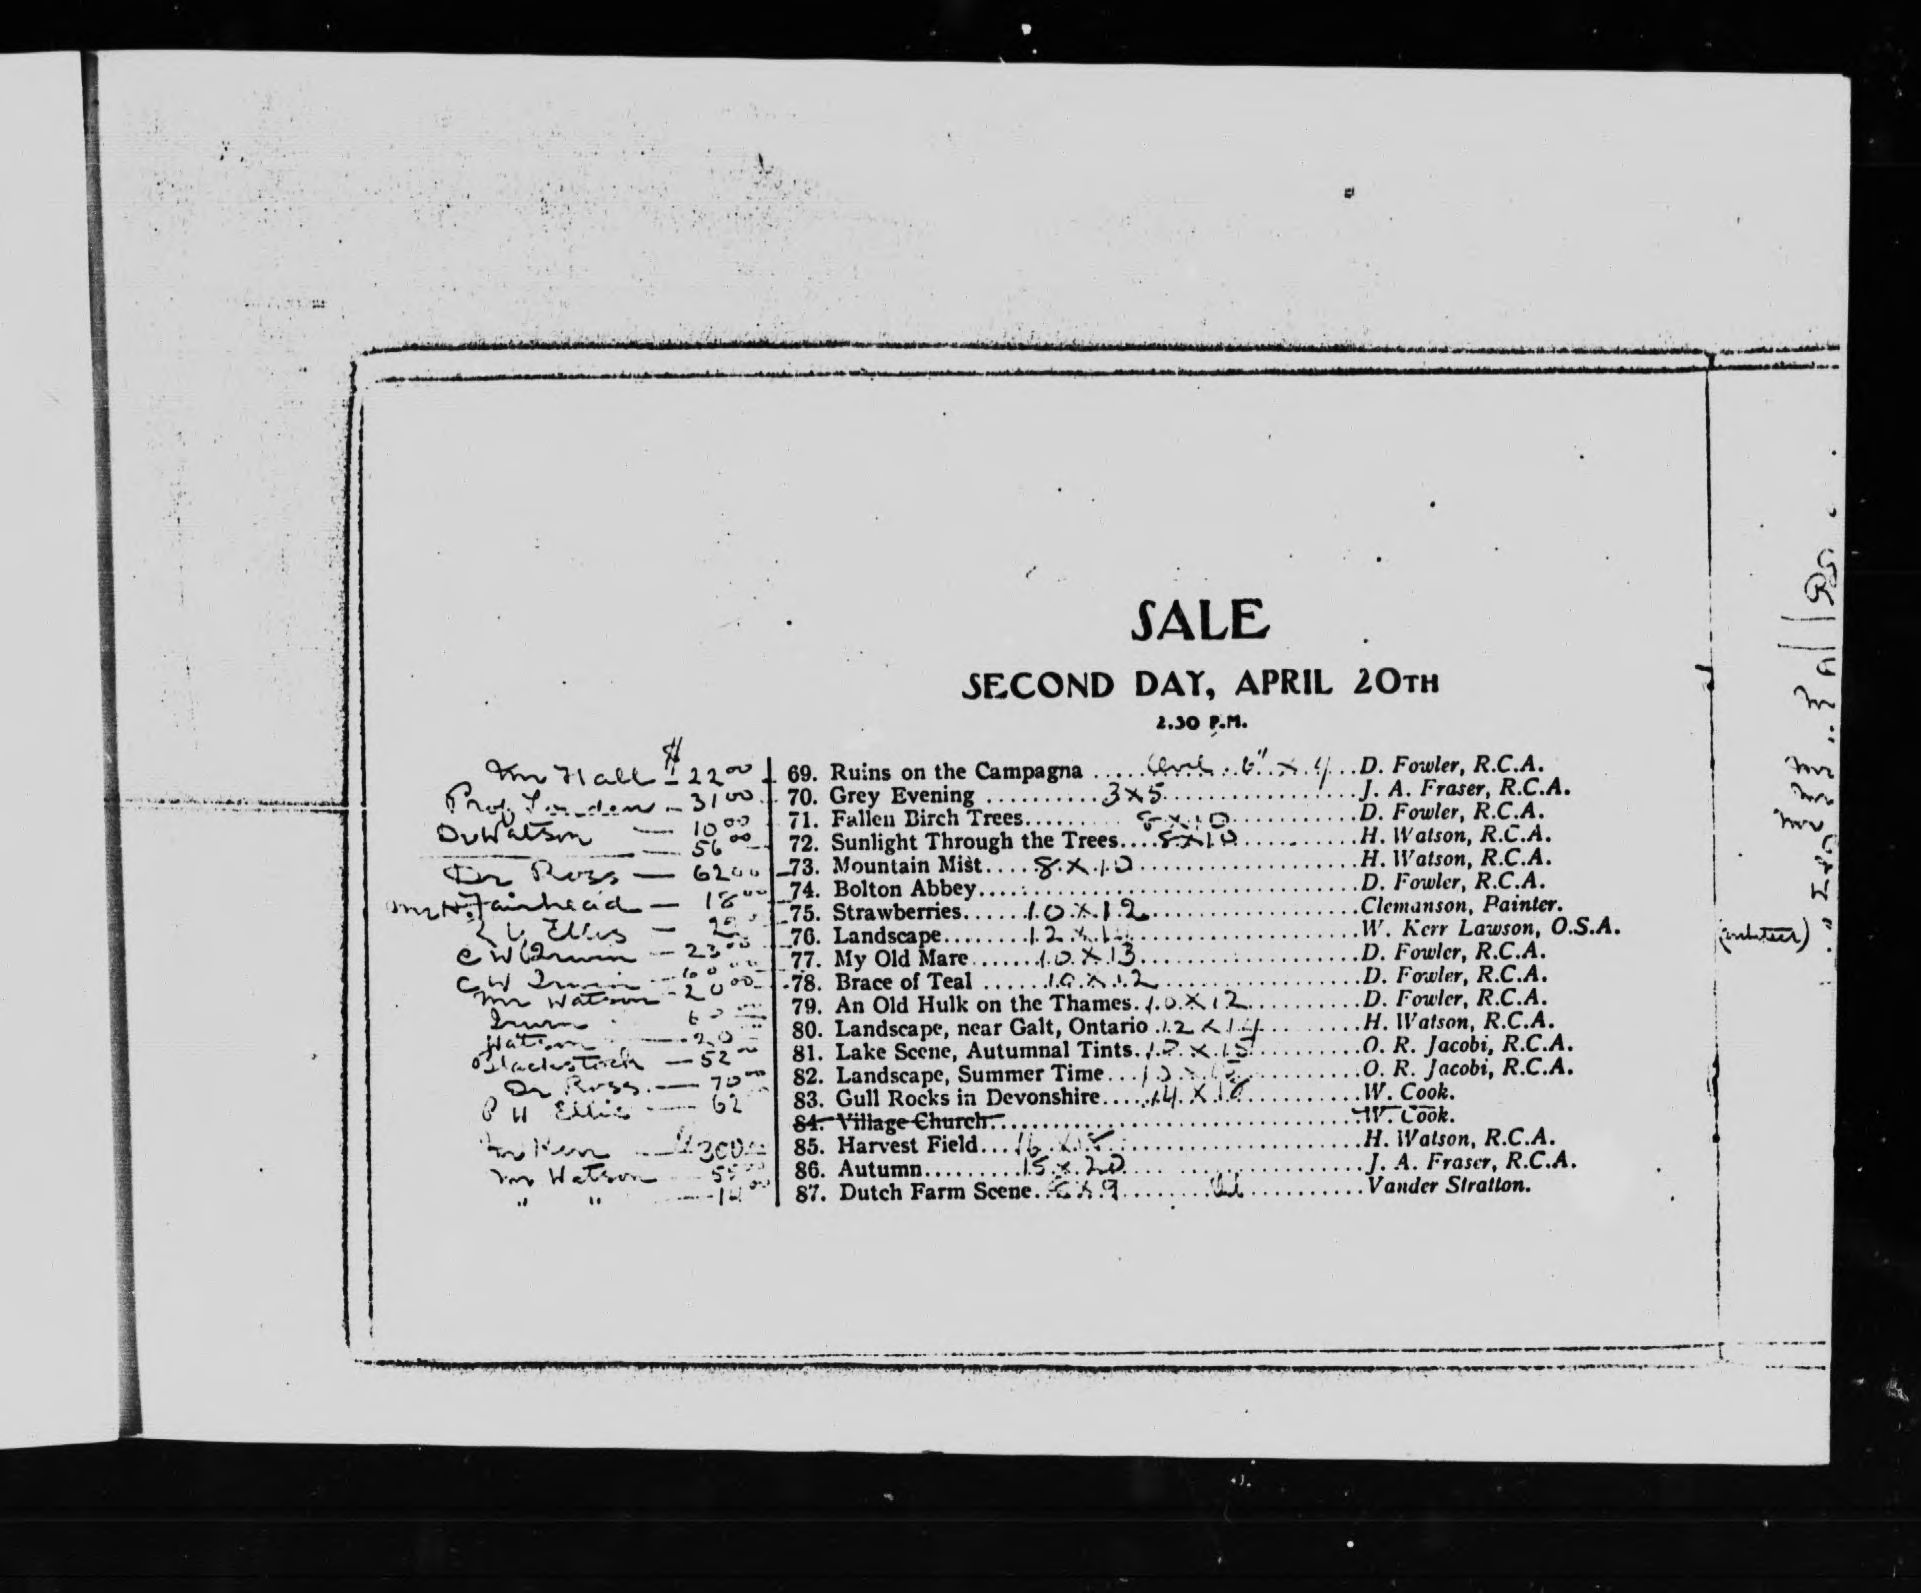 SALE
SECOND DAY, APRIL 20TH
2.30 P.M.
Hall $22.00 69. Ruins on the Campagna ..... 6" x 4 ...D. Fowler, R.C.A.
Prof. — 31.00 70. Grey Evening .......... 3 x 5 ..................J. A. Fraser, R.C.A.
Dr Watson — 10.00 71. Fallen Birch Trees......... 8 x 10 ............D. Fowler, R.C.A.
— 56.00 72. Sunlight Through the Trees.... 8 x 10 ............H. Watson, R.C.A.
Dr Ross — 62.00 73. Mountain Mist..... 8 x 10 ......................H. Watson, R.C.A.
Mr H. Fairhead — 18.00 74. Bolton Abbey..................................D. Fowler, R.C.A.
Ellis — 75. Strawberries...... 10 x 12 ....................Clemanson, Painter.
C W Irwin — 23.00 76. Landscape........ 12 x 14 .....................W. Kerr Lawson, O.S.A.
C W Irwin — 77. My Old Mare ...... 10 x 13 .....................D. Fowler, R.C.A.
Mr Watson — 20.00 78. Brace of Teal ...... 10 x 12 ...................D. Fowler, R.C.A.
Irwin 60 79. An Old Hulk on the Thames. 10 x 12 ............D. Fowler, R.C.A.
Watson — 20 80. Landscape, near Galt, Ontario . 12 x 14 ..........H. Watson, R.C.A.
Blackstock — 52.00 81. Lake Scene, Autumnal Tints. x 15 ..........O. R. Jacobi, R.C.A.
Dr Ross — 70.00 82. Landscape, Summer Time ... ............O. R. Jacobi, R.C.A.
P H Ellis — 62 83. Gull Rocks in Devonshire.... 14 x ...........W. Cook.
84. Village Church.................................W. Cook.
Kerr — $300.00 85. Harvest Field... 16 x ....................H. Watson, R.C.A.
Mr Watson 55.00 86. Autumn......... 15 x 20 ......................J. A. Fraser, R.C.A.
" " — 14.00 87. Dutch Farm Scene.. x 9 ......... ...........Vander Stratton.